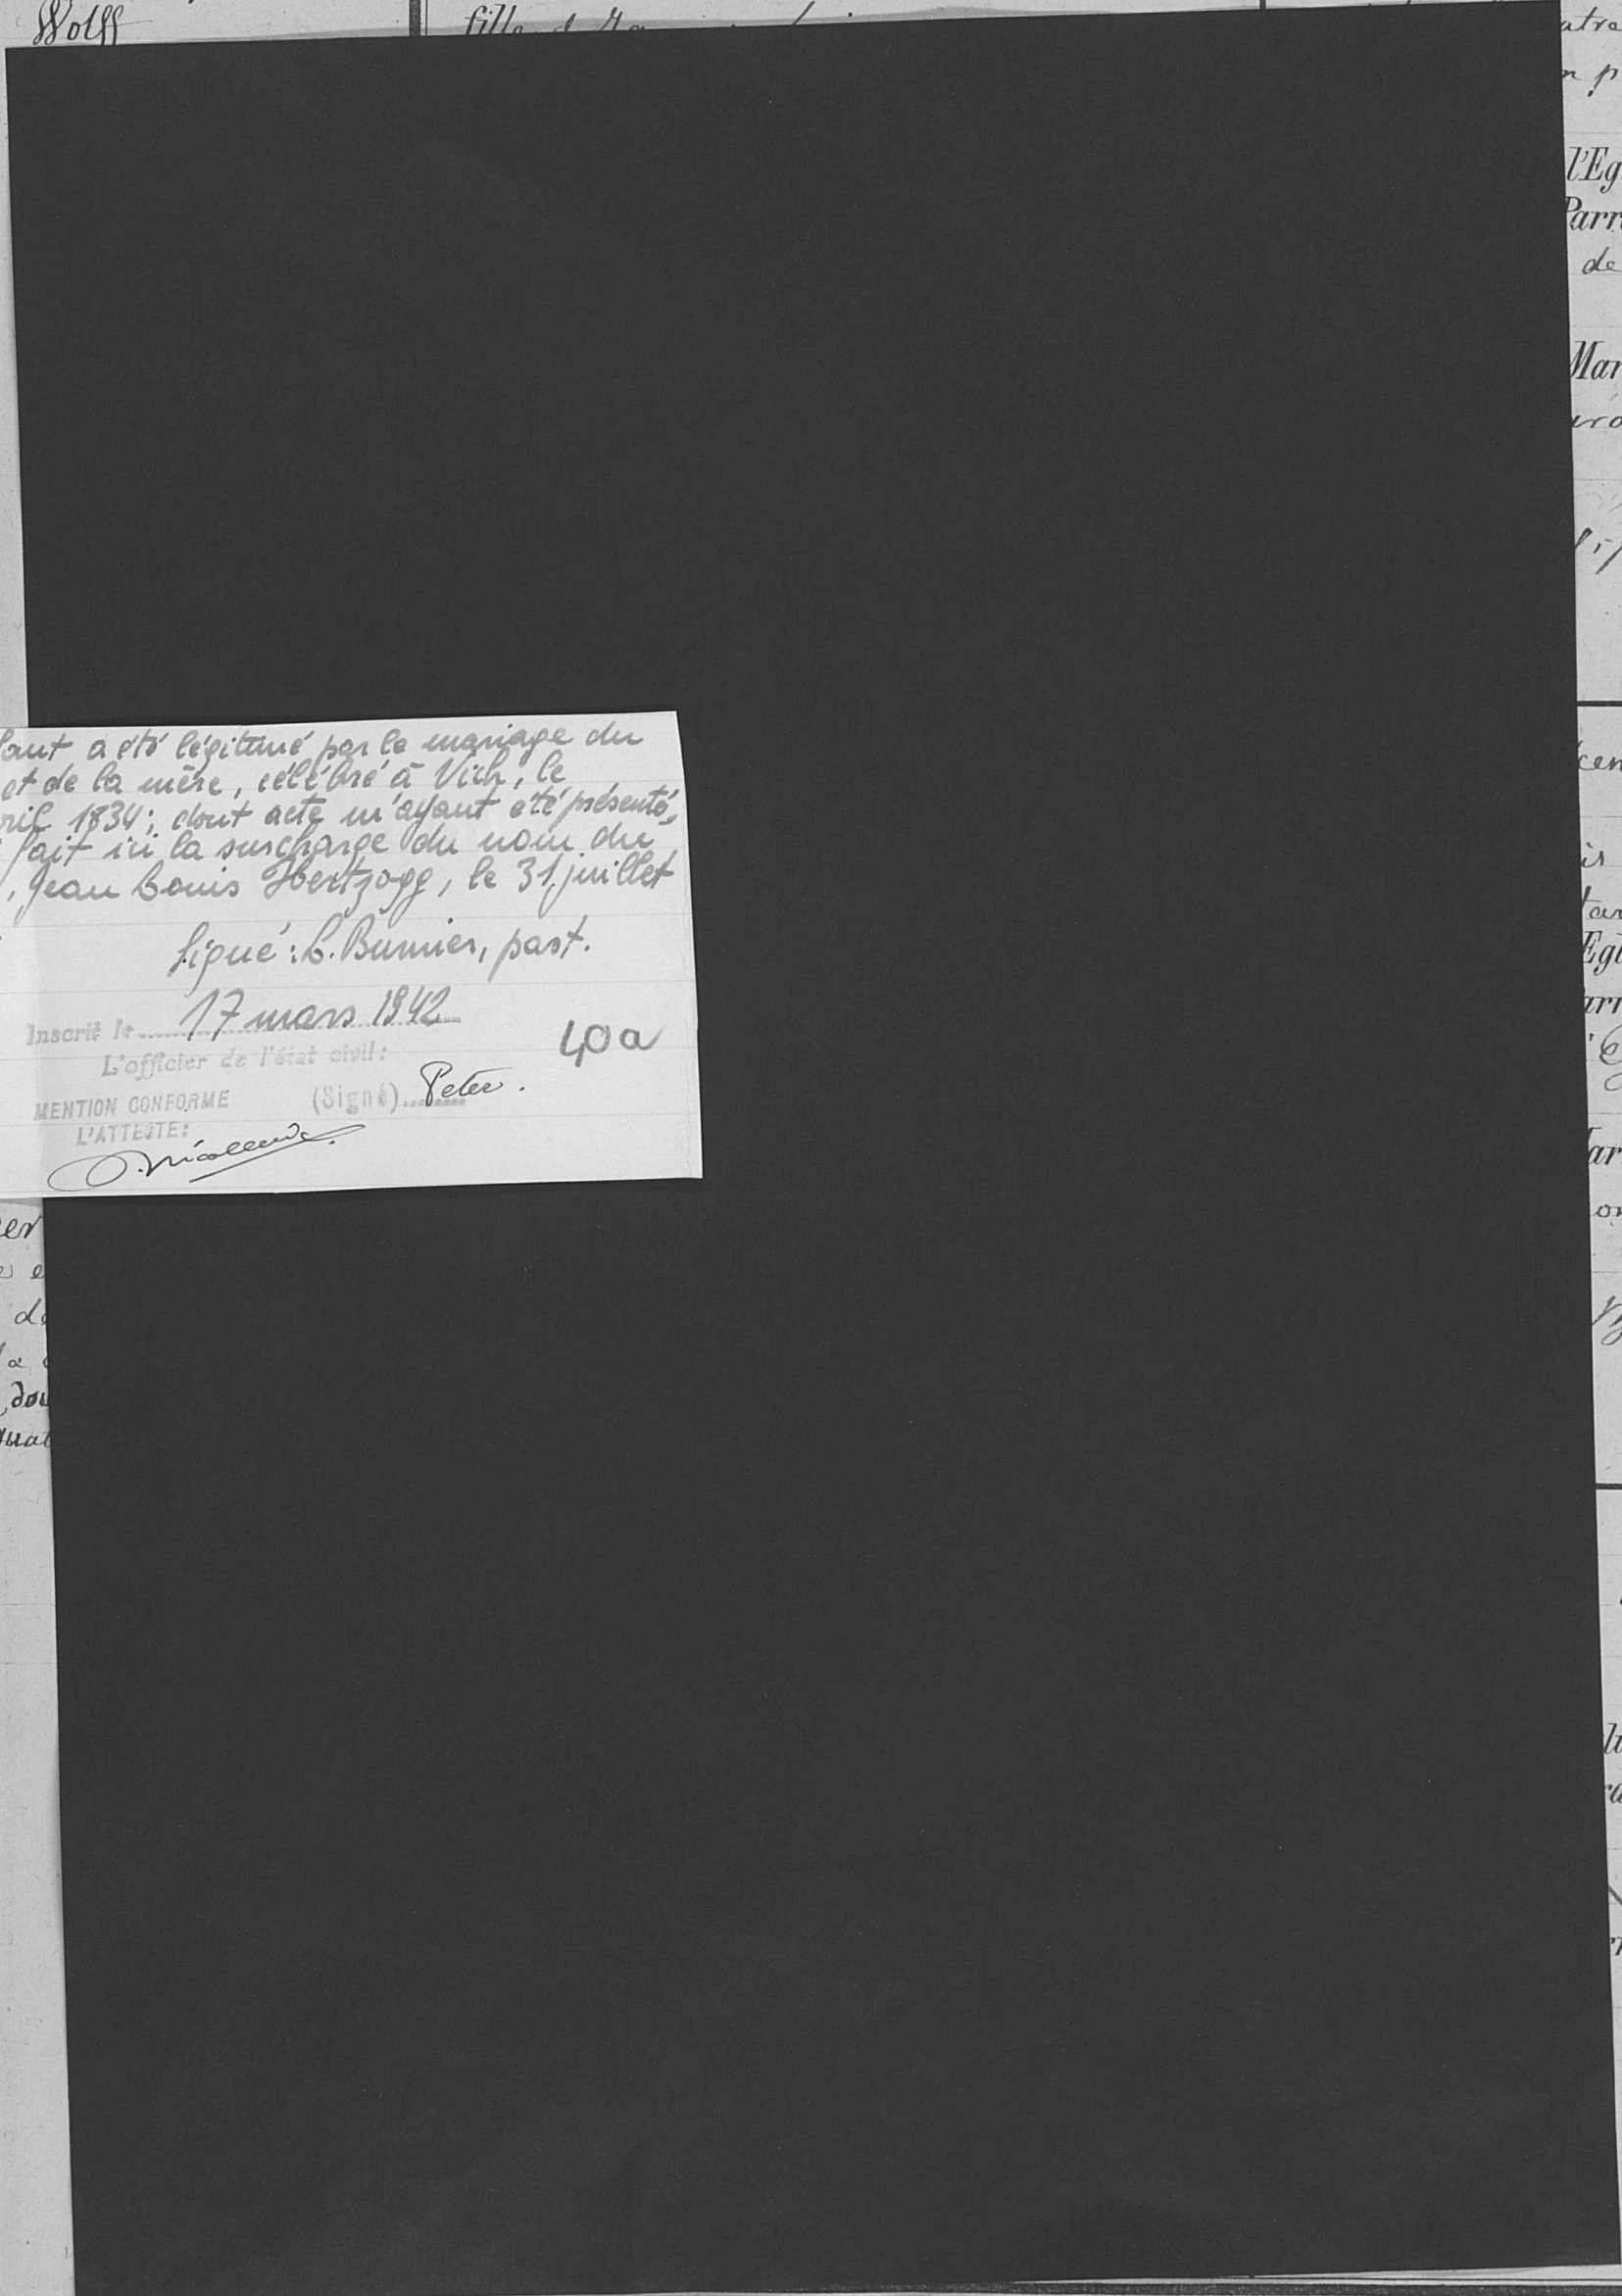 Wolff
fille d
atre
n p
l'Eg
Parr
de
Mar
lant a été légitimé par le mariage du
et de la mère, célébré à Vich, le
ril 1834; dont acte m'ayant été présenté,
fait ici la surcharge du nom du
, Jean Louis Hertzogg, le 31 juillet
signé: L. Burnier, past.
Inscrit le 17 mars 1942
40a
L'officier de l'état civil:
MENTION CONFORME (Signé) Peter.
L'ATTESTE:
cen
is
Egl
arr
ar
on
er
e e
de
la
dou
quat